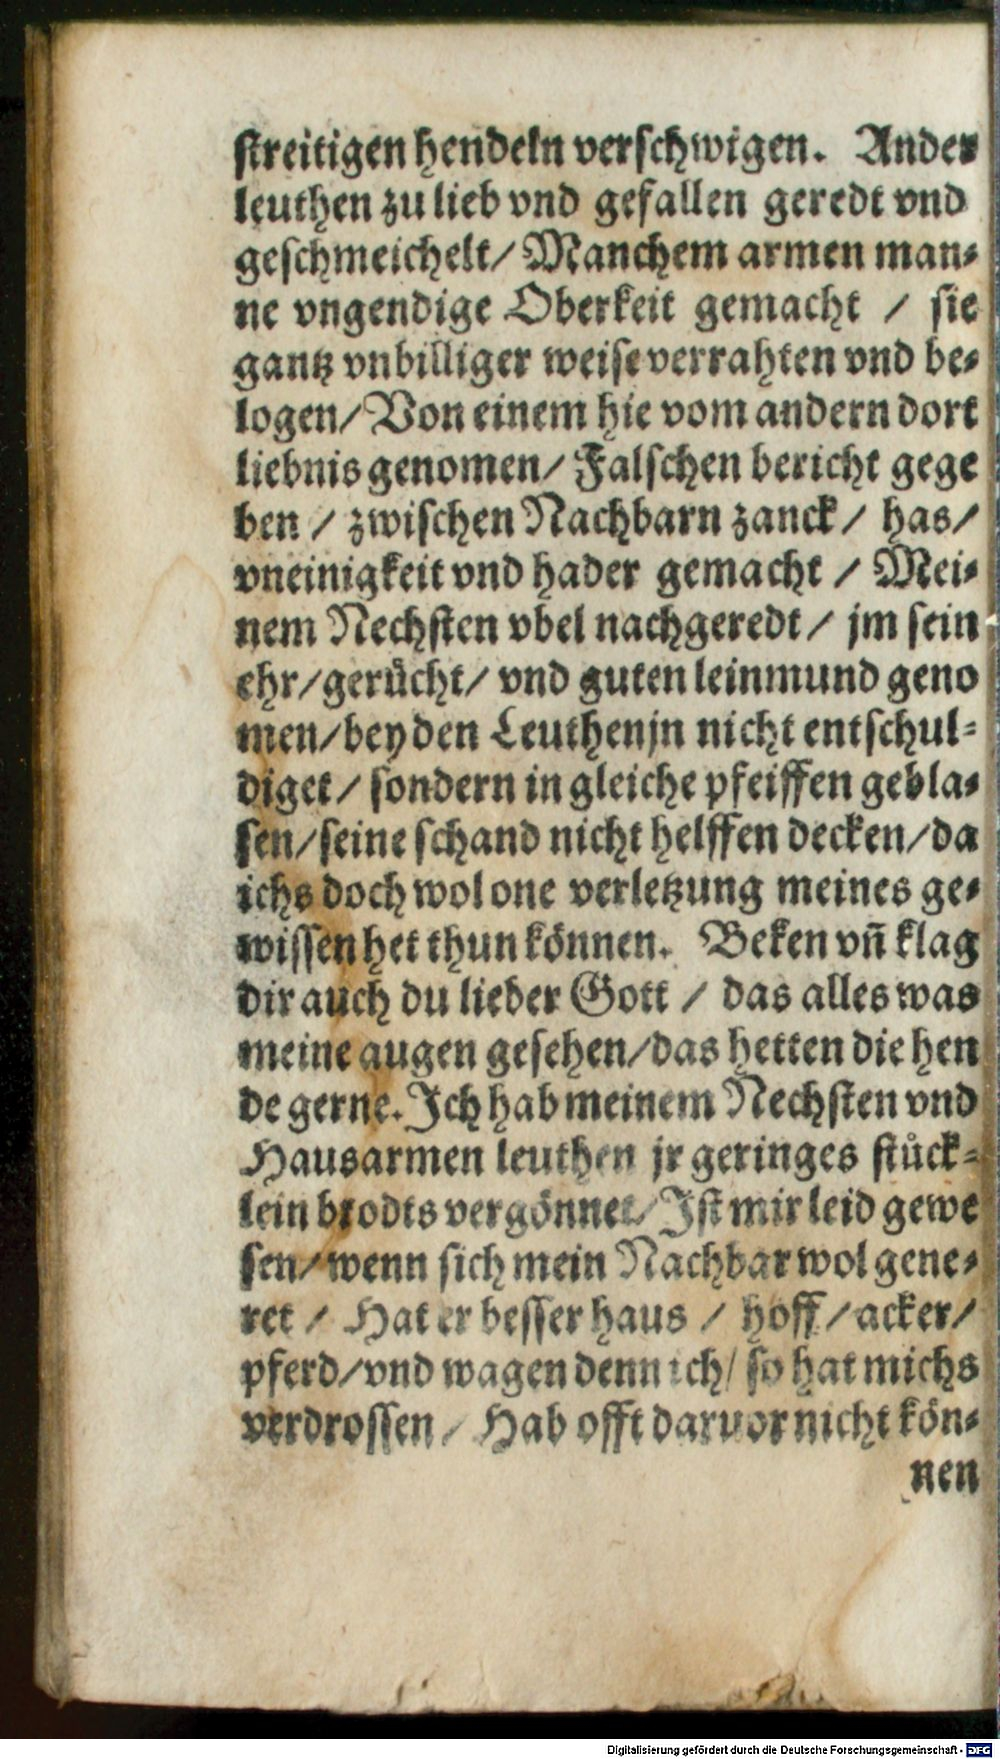 ſtreitigen hendeln verſchwigen. Ander
leuthen zu lieb vnd gefallen geredt vnd
geſchmeichelt/ Manchem armen man⸗
ne vngendige Oberkeit gemacht / ſie
gantz vnbilliger weiſe verrahten vnd be⸗
logen/ Von einem hie vom andern dort
liebnis genomen/ Falſchen bericht gege
ben / zwiſchen Nachbarn zanck/ has/
vneinigkeit vnd hader gemacht / Mei⸗
nem Nechſten vbel nachgeredt/ jm ſein
ehr/gerücht/ vnd guten leinmund geno
men/bey den Leuthen jn nicht entſchul⸗
diget/ ſondern in gleiche pfeiffen gebla⸗
ſen/ſeine ſchand nicht helffen decken/da
ichs doch wol one verletzung meines ge⸗
wiſſen het thun können. Beken vn̄ klag
dir auch du lieber Gott / das alles was
meine augen geſehen/das hetten die hen
de gerne. Ich hab meinem Nechſten vnd
Hausarmen leuthen jr geringes ſtůck⸗
lein brodts vergönnet/ Iſt mir leid gewe
ſen/ wenn ſich mein Nachbar wol gene⸗
ret / Hat er beſſer haus / hoff/acker/
pferd/vnd wagen denn ich/ ſo hat michs
verdroſſen / Hab offt daruor nicht kön⸗
nen
Digitalisierung gefördert durch die Deutsche Forschungsgemeinschaft - DFG